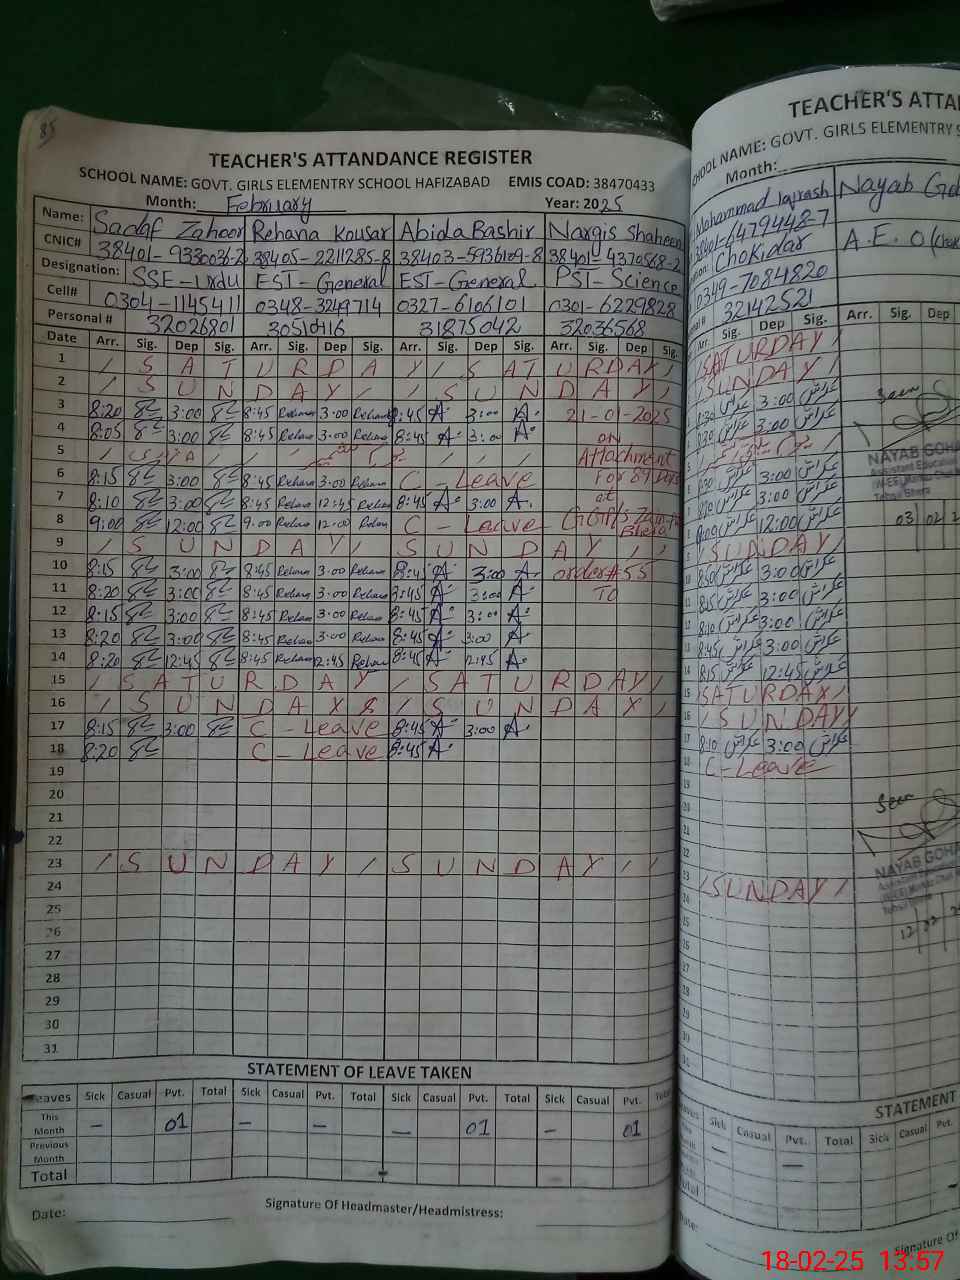 85
TEACHER'S ATTANDANCE REGISTER
SCHOOL NAME: GOVT. GIRLS ELEMENTRY SCHOOL HAFIZABAD EMIS COAD: 38470433
Month: February Year: 2025
Name: Sadaf Zahoor Rehana Kousar Abida Bashir Nargis Shaheen
CNIC# 38401-9330036-2 38405-2211285-8 38403-5936109-8 38401-4370568-2
Designation: SSE-Urdu EST-General EST-General PST-Science
Cell# 0304-1145411 0348-3249714 0327-6106101 0301-6229828
Personal # 32026801 30510416 31875042 32036568
Date Arr. Sig. Dep Sig. Arr. Sig. Dep Sig. Arr. Sig. Dep Sig. Arr. Sig. Dep Sig.
1 / S A T U R D A Y / S A T U R D A Y /
2 / S U N D A Y / / S U N D A Y /
3 8:20 3:00 8:45 Rehana 3:00 Rehana 8:45 A 3:00 A 21-01-2025
4 8:05 3:00 8:45 Rehana 3:00 Rehana 8:45 A 3:00 A on
5 Attachment
6 8:15 3:00 8:45 Rehana 3:00 Rehana C - Leave For 89 Days
7 8:10 3:00 8:45 Rehana 12:45 Rehana 8:45 A 3:00 A at
8 9:00 12:00 9:00 Rehana 12:00 Rehana C - Leave
9 / S U N D A Y / S U N D A Y / /
10 8:15 3:00 8:45 Rehana 3:00 Rehana 8:45 A 3:00 A order # 55
11 8:20 3:00 8:45 Rehana 3:00 Rehana 8:45 A 3:00 A TO
12 8:15 3:00 8:45 Rehana 3:00 Rehana 8:45 A 3:00 A
13 8:20 3:00 8:45 Rehana 3:00 Rehana 8:45 A 3:00 A
14 8:20 12:45 8:45 Rehana 12:45 Rehana 8:45 A 12:45 A
15 / S A T U R D A Y / S A T U R D A Y /
16 / S U N D A Y / S U N D A Y /
17 8:15 3:00 C - Leave 8:45 A 3:00 A
18 8:20 C - Leave 8:45 A
19
20
21
22
23 / S U N D A Y / S U N D A Y / /
24
25
26
27
28
29
30
31
STATEMENT OF LEAVE TAKEN
Leaves Sick Casual Pvt. Total Sick Casual Pvt. Total Sick Casual Pvt. Total Sick Casual Pvt. Total
This Month - 01 - - - 01 - 01
Previous Month
Total
Date: Signature Of Headmaster/Headmistress:
TEACHER'S ATTA
SCHOOL NAME: GOVT. GIRLS ELEMENTRY S
Month:
Mohammad Nayab
38401-6479448-7
Chokidar A.E.O
0349-7084820
32142521
Arr. Sig. Dep Sig. Arr. Sig. Dep
/SATURDAY/
/SUNDAY/
8:30 3:00
8:30 3:00
Seen
NAYAB GOHA
Assistant Education
Tehsil Bhera
8:30 3:00
8:20 3:00
9:00 12:00
03 02 2
/SUNDAY/
8:50 3:00
8:15 3:00
8:10 3:00
8:45 3:00
8:15 12:45
SATURDAY/
/SUNDAY
8:10 3:00
C-Leave
Seen
NAYAB GOHA
Tehsil Bhera
/SUNDAY/
12 02
STATEMENT
Leaves Sick Casual Pvt. Total Sick Casual Pvt.
Total
Date:
Signature Of
18-02-25 13:57